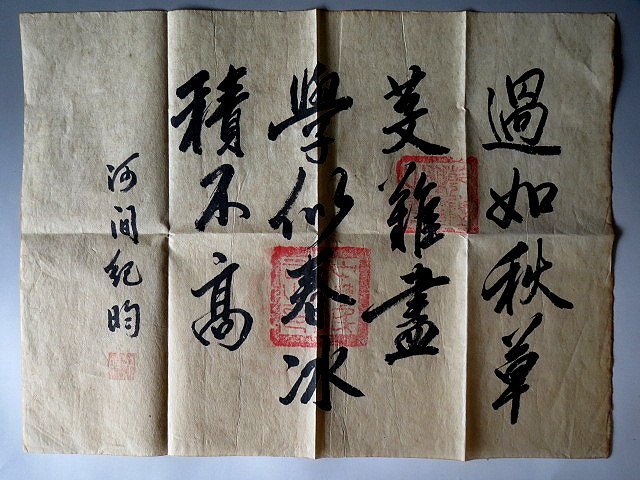 過如秋草
芟難盡
學似春冰
積不高
河間紀昀